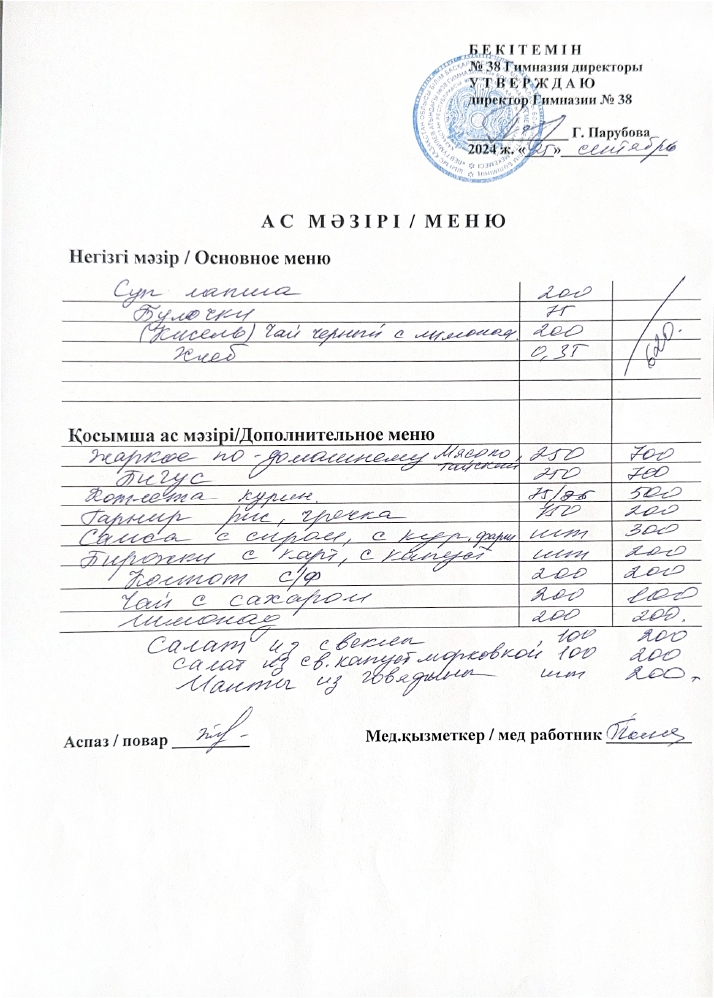 БЕКІТЕМІН
№ 38 Гимназия директоры
УТВЕРЖДАЮ
директор Гимназии № 38
Г. Парубова
2024 ж. «25» сентябрь
АС МӘЗІРІ / МЕНЮ
Негізгі мәзір / Основное меню
Суп лапша 200
Булочки 75
(Кисель) Чай черный с лимонад. 200 620.
Хлеб 0,35
Қосымша ас мәзірі/Дополнительное меню
Жаркое по-домашнему 250 700
Бигус 250 700
Котлета курин. 75/ 500
Гарнир рис, гречка 150 200
Самса с сыром, с кур. фарш шт 300
Пирожки с карт, с капуст шт 200
Компот с/ф 200 200
Чай с сахаром 200 100
Лимонад 200 200.
Салат из свеклы 100 200
Салат из св. капуст морковкой 100 200
Манты из говядины шт 200
Аспаз / повар
Мед.қызметкер / мед работник